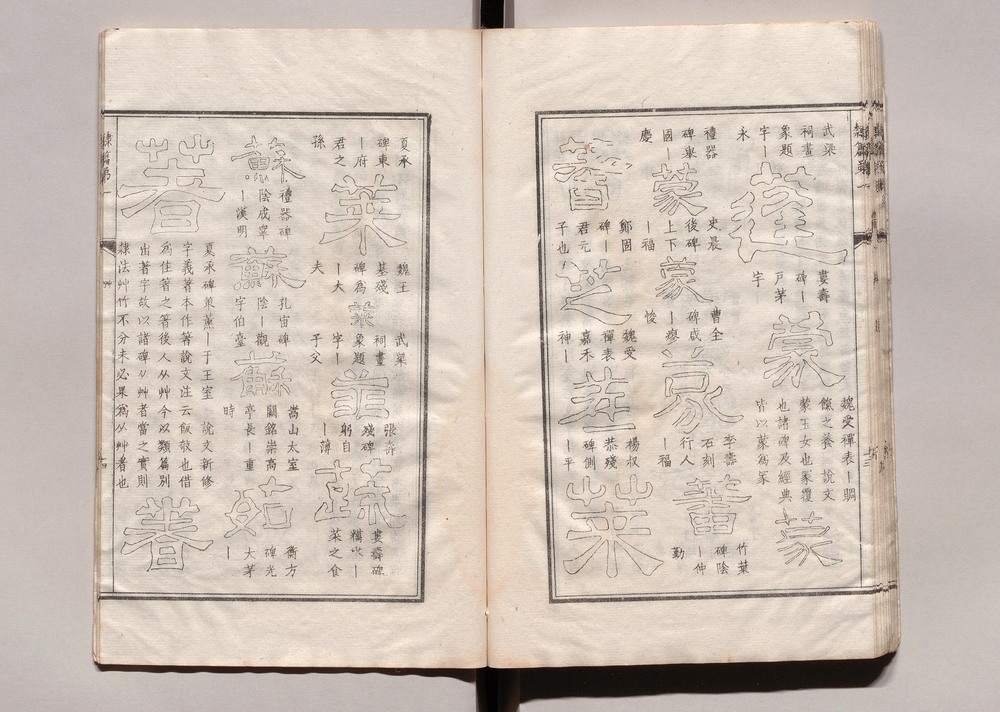 蓬
武梁
祠畫
象題
字丨
永
蒙
婁壽
碑丨
戸茅
宇
蒙
魏受禪表丨賜
餘之養 說文
蒙玉女也冡覆
也諸碑及經典
皆以蒙為冡
蒙
禮器
碑東
國丨
慶
蒙
史晨
後碑
上下
丨福
曹全
碑咸
丨瘳
悛
李壽
石刻
行人
丨福
蕃
竹葉
碑陰
丨仲
勤
蓍
鄭固
碑丨
君元
子也
芝
魏受
禪表
嘉禾
神丨
莊
楊叔
恭殘
碑側
丨平
萊
夏承
碑東
丨府
君之
孫
萊
魏王
基殘
碑為
丨大
夫
萊
武梁
祠畫
象題
字丨
子父
菲
張壽
殘碑
躬自
丨薄
蔬
婁壽碑
糲
菜之食
蘇
禮器碑
陰成睾
丨漢明
蘇
孔宙碑
陰丨觀
字伯臺
蘇
嵩山太室
闕銘崇高
亭長丨重
時
茹
衡方
碑光
大茅
丨
著
夏承碑策薰丨于王室 說文新修
字義著本作箸說文注云飯攲也借
為住箸之箸後人从艸今以類篇別
出著字故以諸碑从艸者當之實則
隸法艸竹不分未必果為从艸者也